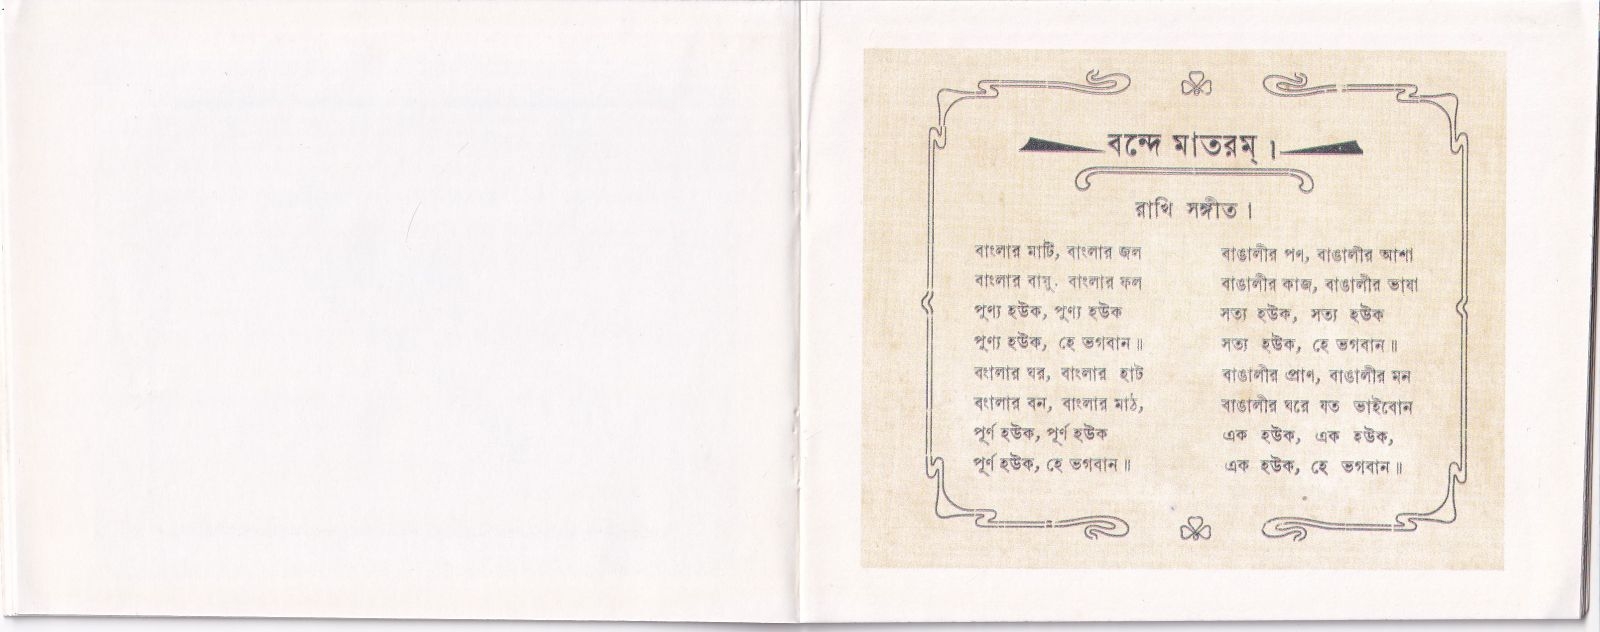 বন্দে মাতরম্ ।
রাখি সঙ্গীত ।
বাংলার মাটি, বাংলার জল
বাংলার বায়ু. বাংলার ফল
পুণ্য হউক, পুণ্য হউক
পুণ্য হউক, হে ভগবান ॥
বাংলার ঘর, বাংলার হাট
বাংলার বন, বাংলার মাঠ,
পূর্ণ হউক, পূর্ণ হউক
পূর্ণ হউক, হে ভগবান ॥
বাঙালীর পণ, বাঙালীর আশা
বাঙালীর কাজ, বাঙালীর ভাষা
সত্য হউক, সত্য হউক
সত্য হউক, হে ভগবান ॥
বাঙালীর প্রাণ, বাঙালীর মন
বাঙালীর ঘরে যত ভাইবোন
এক হউক, এক হউক,
এক হউক, হে ভগবান ॥